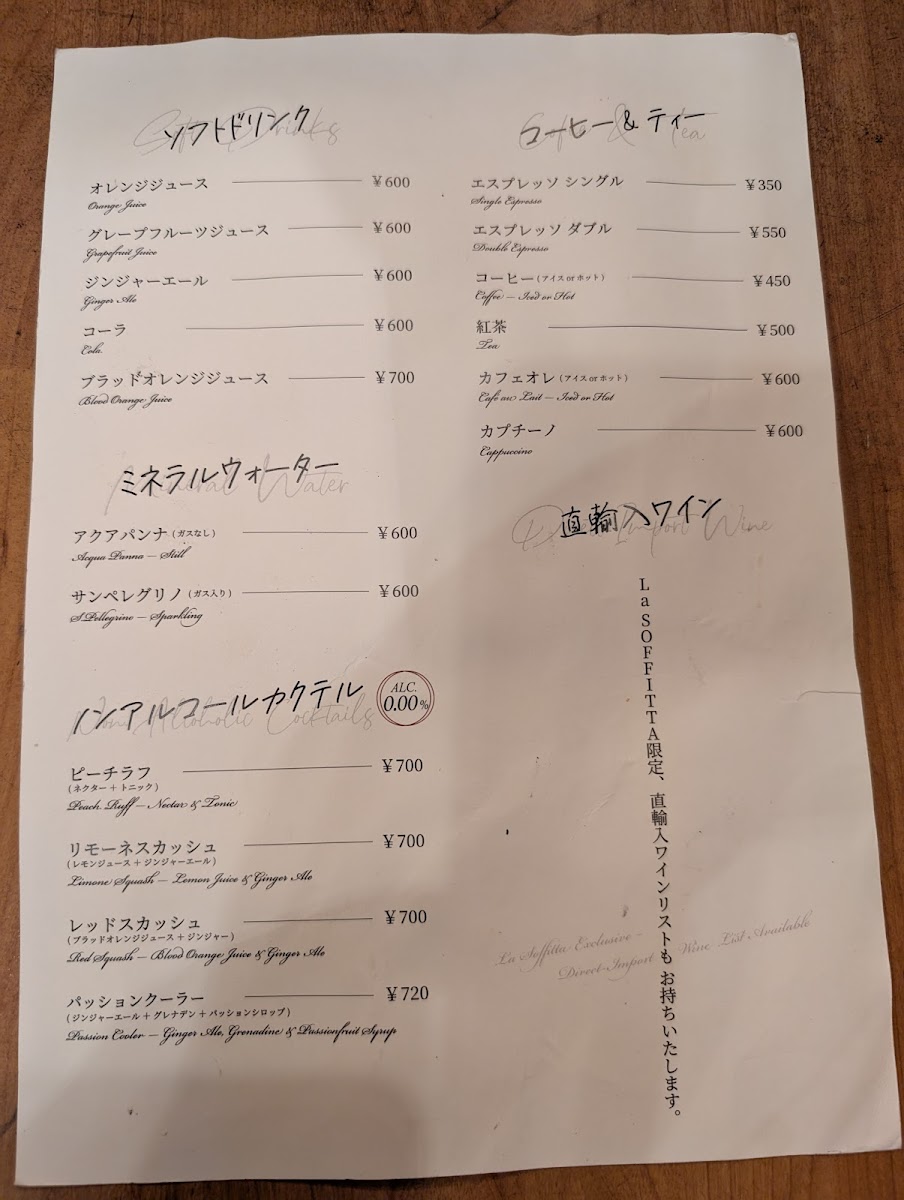 Soft Drinks
ソフトドリンク
オレンジジュース ¥600
Orange Juice
グレープフルーツジュース ¥600
Grapefruit Juice
ジンジャーエール ¥600
Ginger Ale
コーラ ¥600
Cola
ブラッドオレンジジュース ¥700
Blood Orange Juice
Mineral Water
ミネラルウォーター
アクアパンナ (ガスなし) ¥600
Acqua Panna — Still
サンペレグリノ (ガス入り) ¥600
S.Pellegrino — Sparkling
Non-Alcoholic Cocktails
ノンアルコールカクテル
ALC.
0.00%
ピーチラフ ¥700
(ネクター+トニック)
Peach Ruff — Nectar & Tonic
リモーネスカッシュ ¥700
(レモンジュース+ジンジャーエール)
Limone Squash — Lemon Juice & Ginger Ale
レッドスカッシュ ¥700
(ブラッドオレンジジュース+ジンジャー)
Red Squash — Blood Orange Juice & Ginger Ale
パッションクーラー ¥720
(ジンジャーエール+グレナデン+パッションシロップ)
Passion Cooler — Ginger Ale, Grenadine & Passionfruit Syrup
Coffee & Tea
コーヒー&ティー
エスプレッソ シングル ¥350
Single Espresso
エスプレッソ ダブル ¥550
Double Espresso
コーヒー (アイス or ホット) ¥450
Coffee — Iced or Hot
紅茶 ¥500
Tea
カフェオレ (アイス or ホット) ¥600
Café au Lait — Iced or Hot
カプチーノ ¥600
Cappuccino
Direct Import Wine
直輸入ワイン
La SOFFITTA限定、直輸入ワインリストもお持ちいたします。
La Soffitta Exclusive –
Direct-Import Wine List Available